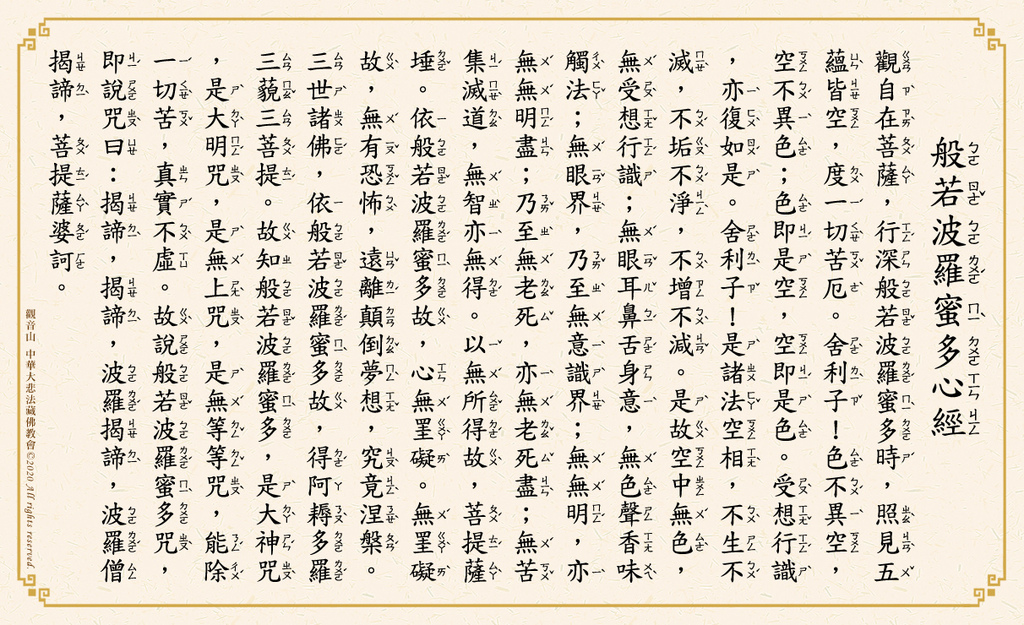 般若波羅蜜多心經
觀自在菩薩，行深般若波羅蜜多時，照見五
蘊皆空，度一切苦厄。舍利子！色不異空，
空不異色；色即是空，空即是色。受想行識
，亦復如是。舍利子！是諸法空相，不生不
滅，不垢不淨，不增不減。是故空中無色，
無受想行識；無眼耳鼻舌身意，無色聲香味
觸法；無眼界，乃至無意識界；無無明，亦
無無明盡；乃至無老死，亦無老死盡；無苦
集滅道，無智亦無得。以無所得故，菩提薩
埵。依般若波羅蜜多故，心無罣礙。無罣礙
故，無有恐怖，遠離顛倒夢想，究竟涅槃。
三世諸佛，依般若波羅蜜多故，得阿耨多羅
三藐三菩提。故知般若波羅蜜多，是大神咒
，是大明咒，是無上咒，是無等等咒，能除
一切苦，真實不虛。故說般若波羅蜜多咒，
即說咒曰：揭諦，揭諦，波羅揭諦，波羅僧
揭諦，菩提薩婆訶。
觀音山 中華大悲法藏佛教會©2020 All rights reserved.